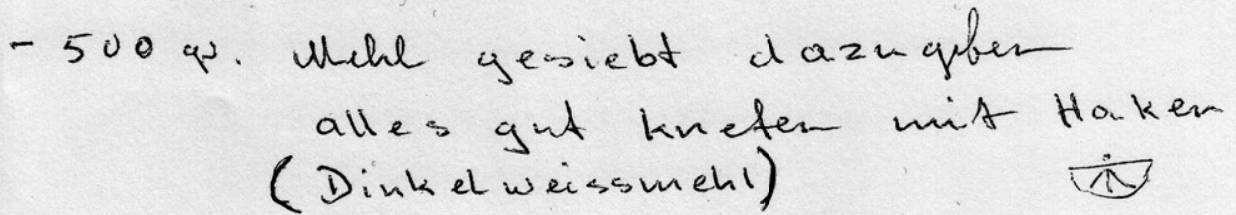 - 500 gr. Mehl gesiebt dazugeben
alles gut kneten mit Haken
(Dinkelweissmehl)